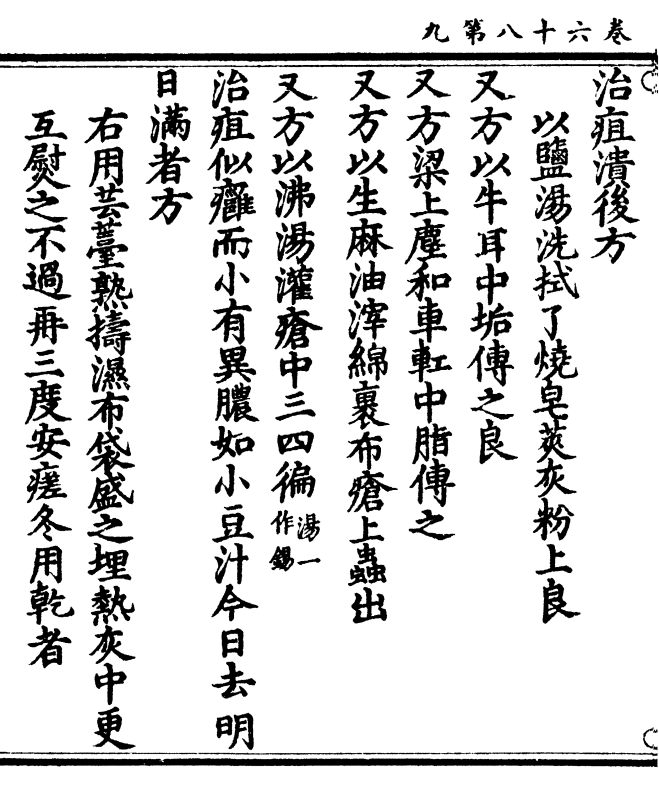 卷六十八第九
治疽潰後方
以鹽湯洗拭了燒皂莢灰粉上良
又方以牛耳中垢傅之良
又方梁上塵和車釭中脂傅之
又方以生麻油滓綿裹布瘡上蟲出
又方以沸湯灌瘡中三四徧湯一作錫
治疽似癰而小有異膿如小豆汁今日去明
日滿者方
右用芸薹熟擣濕布袋盛之埋熱灰中更
互熨之不過再三度安瘥冬用乾者